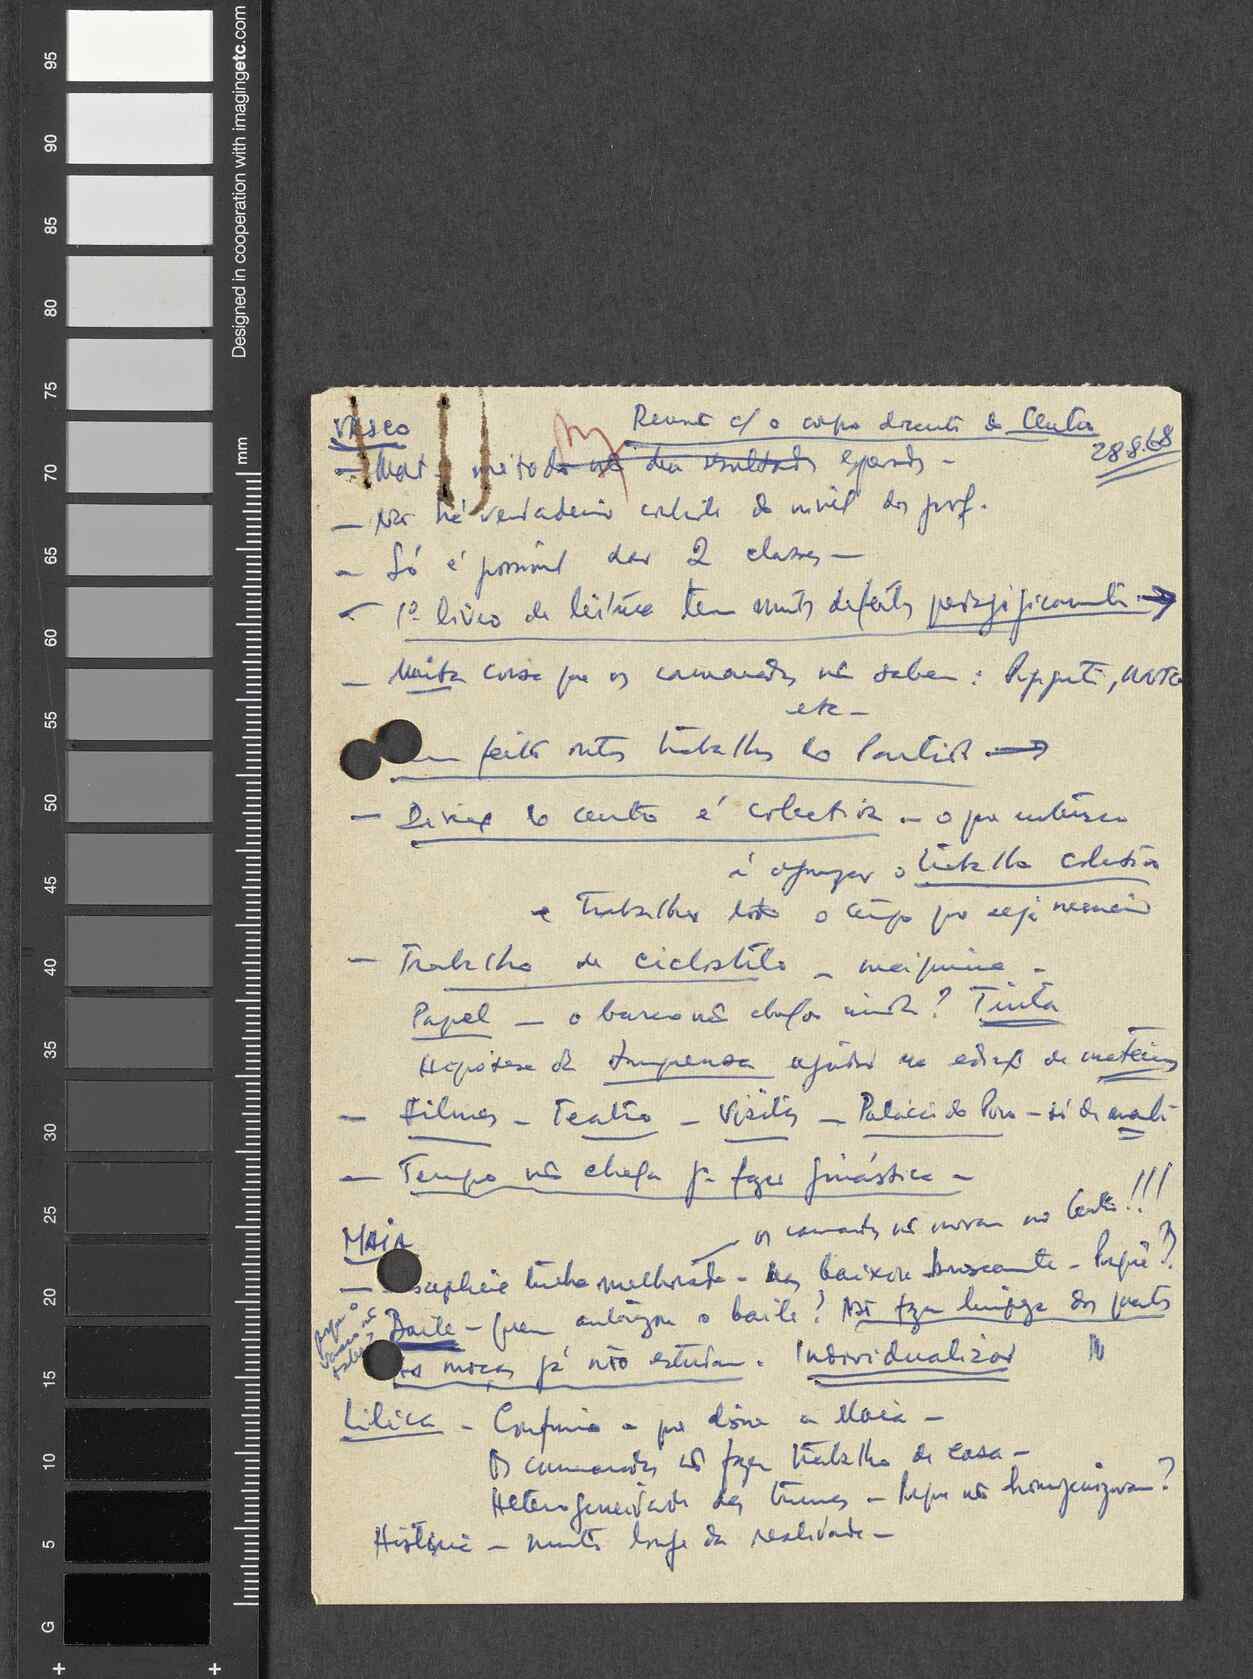 VASCO
Reunião c/ o corpo docente do Centro
28.8.68
método não deu resultados esperados -
- Não há verdadeiro do nível dos prof.
- Só é possível dar 2 classes -
- 1º livro de leitura tem muitos defeitos pedagogicamente →
- Muita coisa que os camaradas não sabem :
etc -
feito outros trabalhos do Partido →
- do centro é colectiva - o que
é o trabalho colectivo
e Trabalhar todo o tempo que seja necessário
- Trabalho de ciclostilo - máquina -
Papel - o barco não chegou ainda? Tinta
Hipótese da Imprensa ajudar na edição de matérias
- Filmes - Teatro - Visitas - Palácio do Povo - só de
- Tempo não chega p. fazer ginástica -
os camaradas não moram no Centro!!!
MAIA
- tinha melhorado - mas baixou bruscamente - Porquê?
Baile - quem autorizou o baile? Não fazem limpeza dos quartos
moças já não estudam. Individualizar
Lilica - Confirma o que disse a Maia -
Os camaradas não fazem trabalho de casa -
Heterogeneidade das turmas - Porque não homogenizaram?
História - muito longe da realidade -
95
90
85
80
75
70
65
60
55
50
45
40
35
30
25
20
15
10
5
G
mm
Designed in cooperation with imagingetc.com